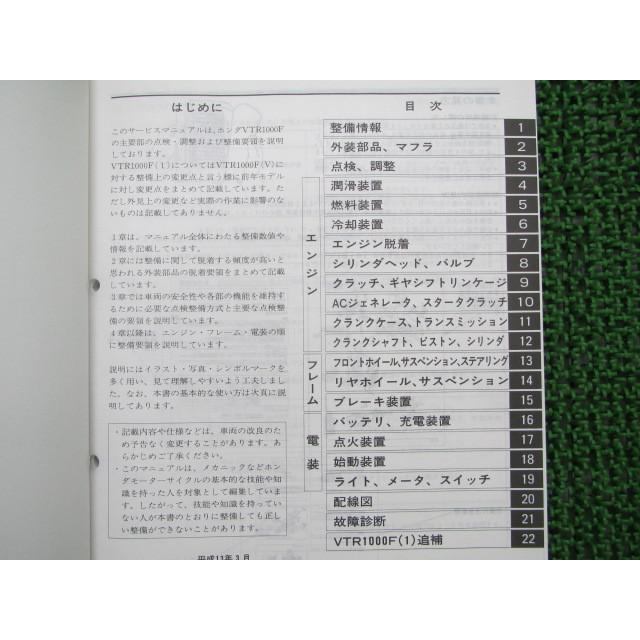 はじめに
このサービスマニュアルは、ホンダVTR1000F
の主要部の点検・調整および整備要領を説明
しております。
VTR1000F(1)についてはVTR1000F(V)に
対する整備上の変更点と言う様に前年モデル
に対し変更点をまとめて記載しています。た
だし外見上の変更など実際の作業に影響のな
いものは記載してありません。
1章は、マニュアル全体にわたる整備数値や
情報を記載しています。
2章には整備に関して脱着する頻度が高いと
思われる外装部品の脱着要領をまとめて記載
しています。
3章では車両の安全性や各部の機能を維持す
るために必要な点検整備方式と主要な点検整
備の要領を説明しています。
4章以降は、エンジン・フレーム・電装の順
に整備要領を説明しています。
説明にはイラスト・写真・シンボルマークを
多く用い、見て理解しやすいよう工夫しまし
た。なお、本書の基本的な使い方は次頁に説
明してあります。
・記載内容や仕様などは、車両の改良のた
め予告なく変更することがあります。あ
らかじめご了承ください。
・このマニュアルは、メカニックなどホン
ダモーターサイクルの基本的な技能や知
識を持った人を対象として編集していま
す。したがって、技能や知識を持ってい
ない人が本書のとおりに整備しても正し
い整備ができないことがあります。
平成13年3月
目 次
整備情報 1
外装部品、マフラ 2
点検、調整 3
エンジン
潤滑装置 4
燃料装置 5
冷却装置 6
エンジン脱着 7
シリンダヘッド、バルブ 8
クラッチ、ギヤシフトリンケージ 9
ACジェネレータ、スタータクラッチ 10
クランクケース、トランスミッション 11
クランクシャフト、ピストン、シリンダ 12
フレーム
フロントホイール、サスペンション、ステアリング 13
リヤホイール、サスペンション 14
ブレーキ装置 15
電装
バッテリ、充電装置 16
点火装置 17
始動装置 18
ライト、メータ、スイッチ 19
配線図 20
故障診断 21
VTR1000F(1)追補 22